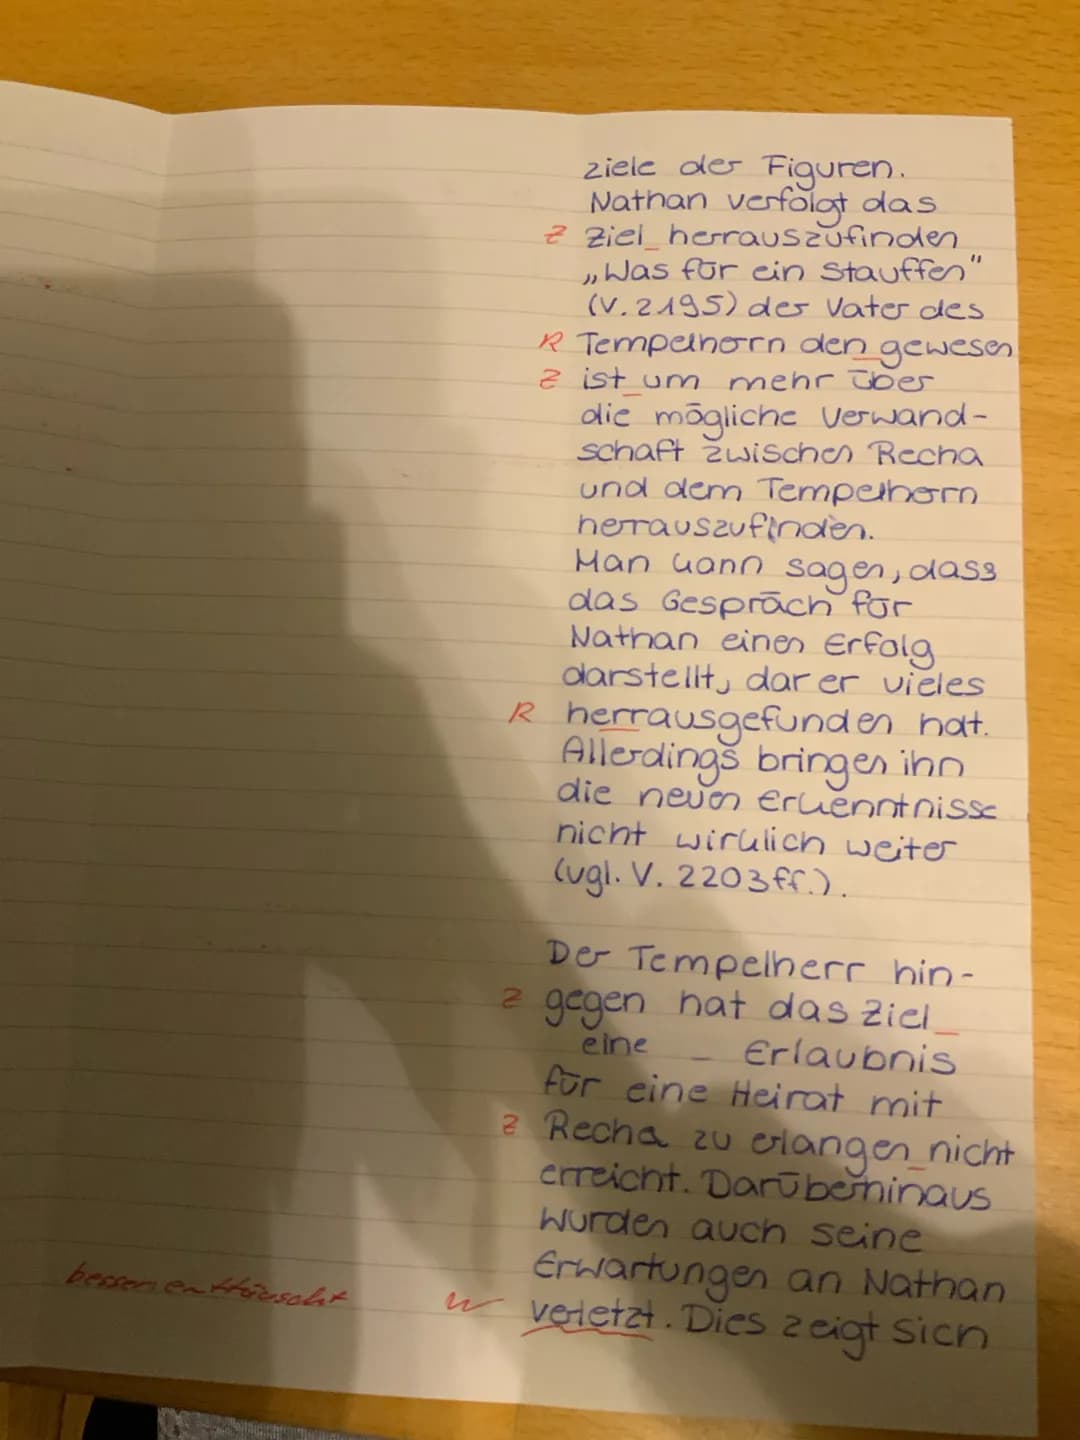 ziele der Figuren.
Nathan verfolgt das
Z Ziel_herrauszufinden
„Was für ein Stauffen"
(V. 2195) der Vater des
R Tempelherrn den gewesen
Z ist_um mehr über
die mögliche Verwand-
schaft zwischen Recha
und dem Tempelherrn
herrauszufinden.
Man kann sagen, dass
das Gespräch für
Nathan einen Erfolg
darstellt, dar er vieles
R herrausgefunden hat.
Allerdings bringen ihn
die neuen Erkenntnisse
nicht wirklich weiter
(vgl. V. 2203 ff.).
Der Tempelherr hin-
Z gegen hat das Ziel_
eine _ Erlaubnis
für eine Heirat mit
Z Recha zu erlangen_nicht
erreicht. Darüberhinaus
wurden auch seine
Erwartungen an Nathan
besser enttäuscht W verletzt. Dies zeigt sich